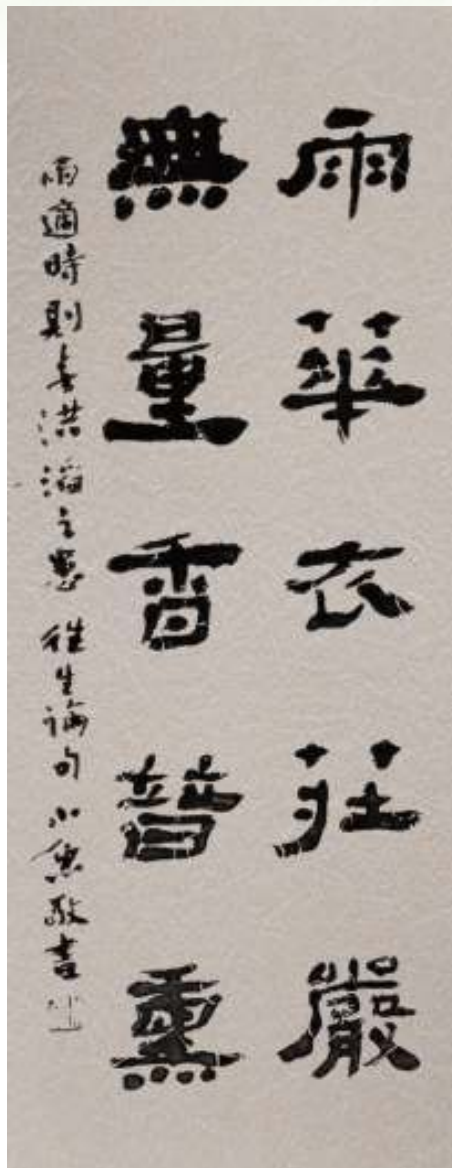 雨華衣莊嚴
無量香普熏
雨適時則洪之患 往生論句 小魚敬書